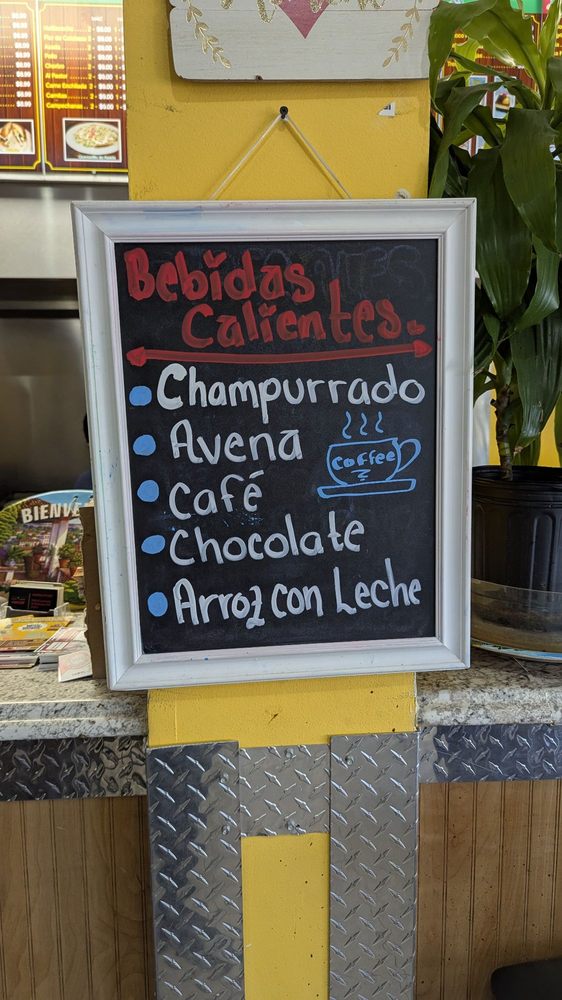 Bebidas
Calientes.
Champurrado
Avena
Café
coffee
Chocolate
Arroz con Leche
BIENVE